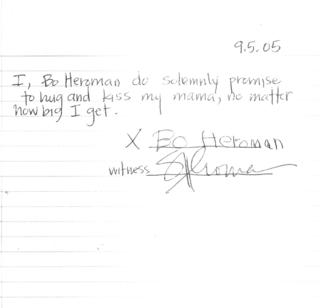 9.5.05
I, Bo Heroman do solemnly promise
to hug and kiss my mama, no matter
how big I get.
X Bo Heroman
witness